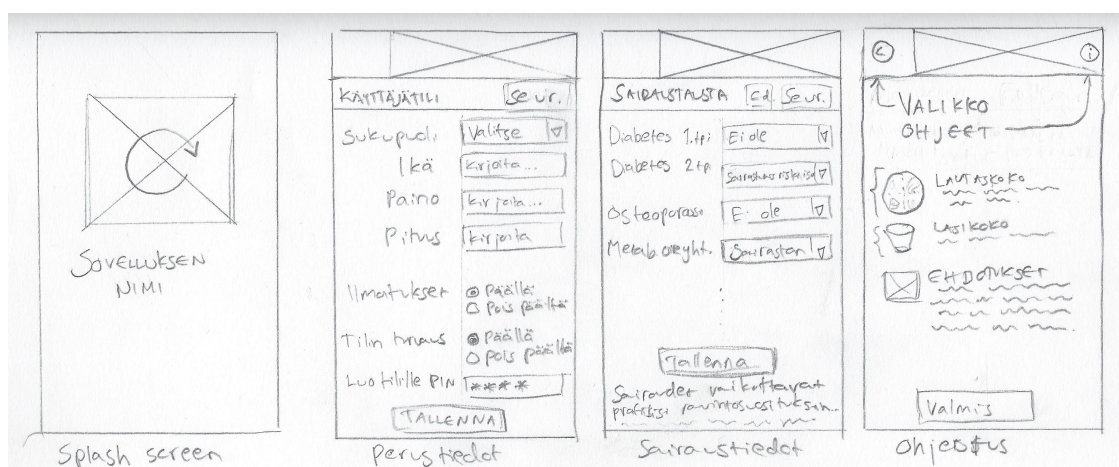 SOVELLUKSEN
NIMI
Splash screen
KÄYTTÄJÄTILI
Seur.
Sukupuoli
Valitse
Ikä
Kirjoita...
Paino
Kirjoita...
Pituus
Kirjoita
Ilmoitukset
Päällä
Pois päältä
Tilin turvaus
Päällä
Pois päältä
Luo tilille PIN
****
TALLENNA
Perustiedot
SAIRAUSTAUSTA
Ed.
Seur.
Diabetes 1.tpi
Ei ole
Diabetes 2tpi
Osteoporoosi
Ei ole
Metab.oireyht.
Sairastan
Tallenna
Sairaudet vaikuttavat
ravintosuosituksiin.
Sairaustiedot
<
i
VALIKKO
OHJEET
LAUTASKOKO
LASIKOKO
EHDOTUKSET
Valmis
Ohjeistus